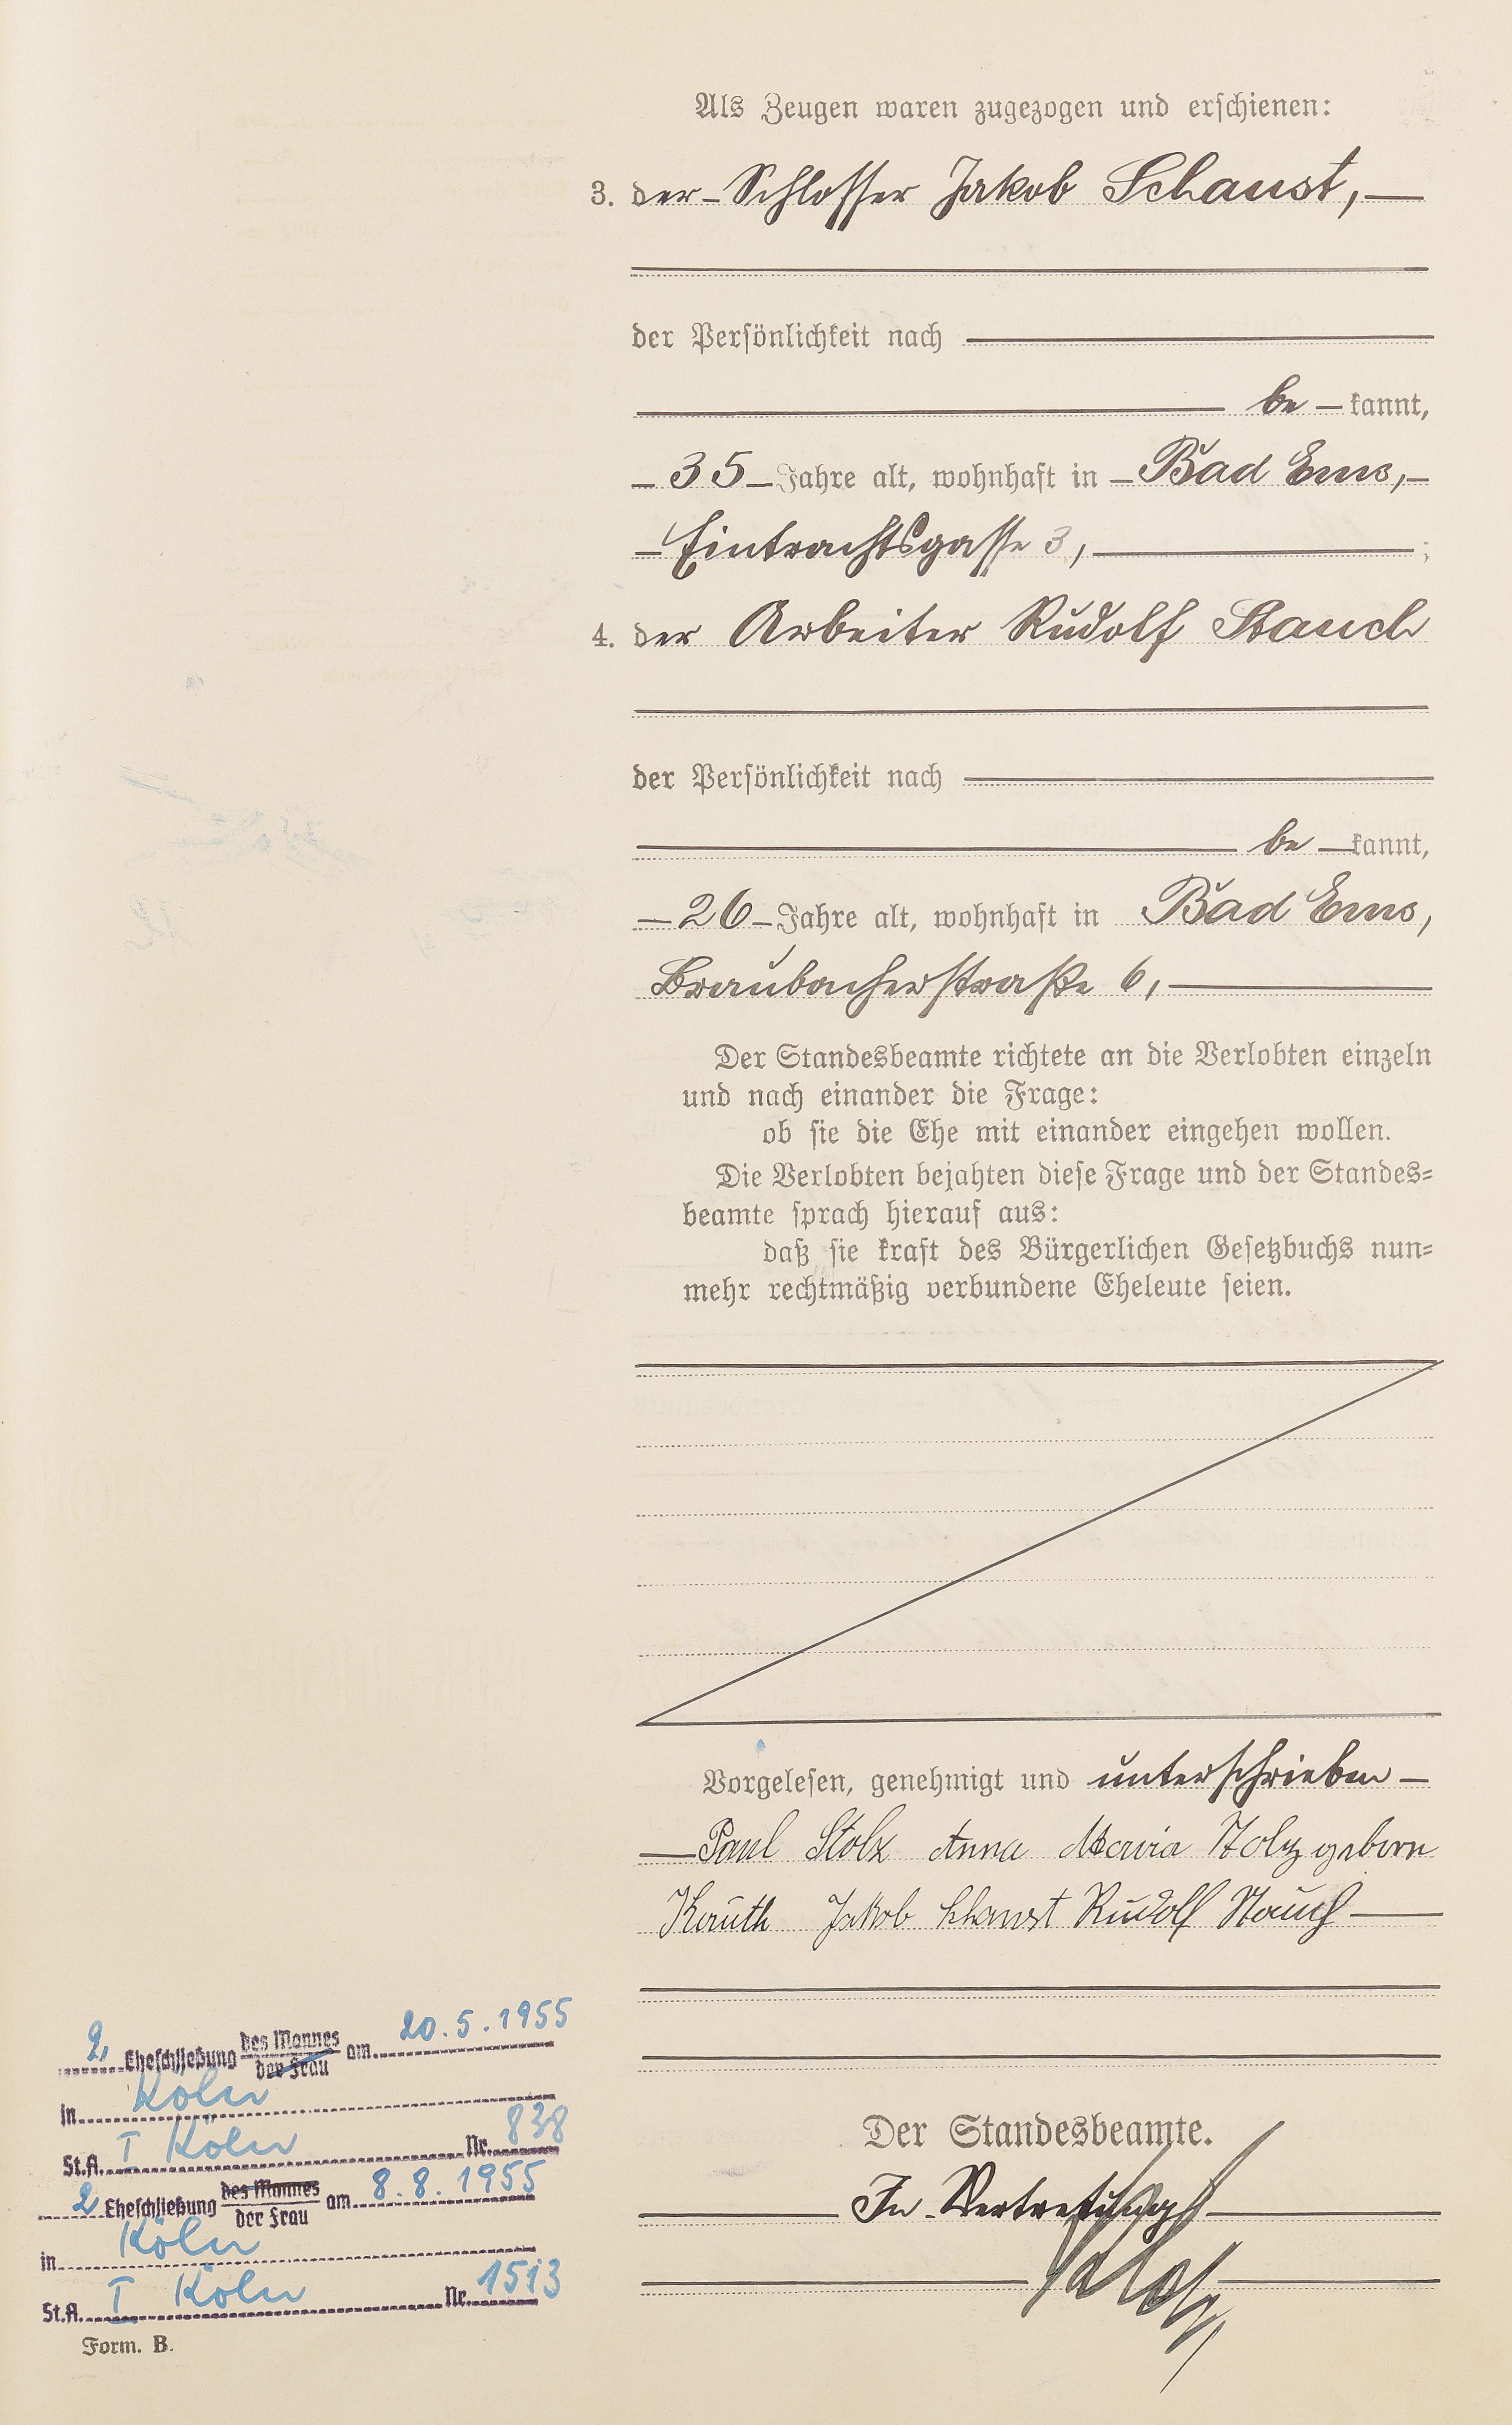 Als Zeugen waren zugezogen und erschienen:
3. der Schlosser Jakob Schaust,
der Persönlichkeit nach
be kannt,
35 Jahre alt, wohnhaft in Bad Ems,
Eintrachtsgasse 3, ;
4. der Arbeiter Rudolf Stauch
der Persönlichkeit nach
be kannt,
26 Jahre alt, wohnhaft in Bad Ems,
Braubacherstraße 6,
Der Standesbeamte richtete an die Verlobten einzeln
und nach einander die Frage:
ob sie die Ehe mit einander eingehen wollen.
Die Verlobten bejahten diese Frage und der Standes=
beamte sprach hierauf aus:
daß sie kraft des Bürgerlichen Gesetzbuchs nun=
mehr rechtmäßig verbundene Eheleute seien.
Vorgelesen, genehmigt und unterschrieben
Paul Stolz Anna Maria Stolz geborn
Kauth Jakob Schaust Rudolf Stauch
Der Standesbeamte.
In Vertretung
2. Eheschließung des Mannes der Frau am 20.5.1955
in Köln
St.A. I Köln Nr. 838
2 Eheschließung des Mannes der Frau am 8.8.1955
in Köln
St.A. I Köln Nr. 1513
Form. B.